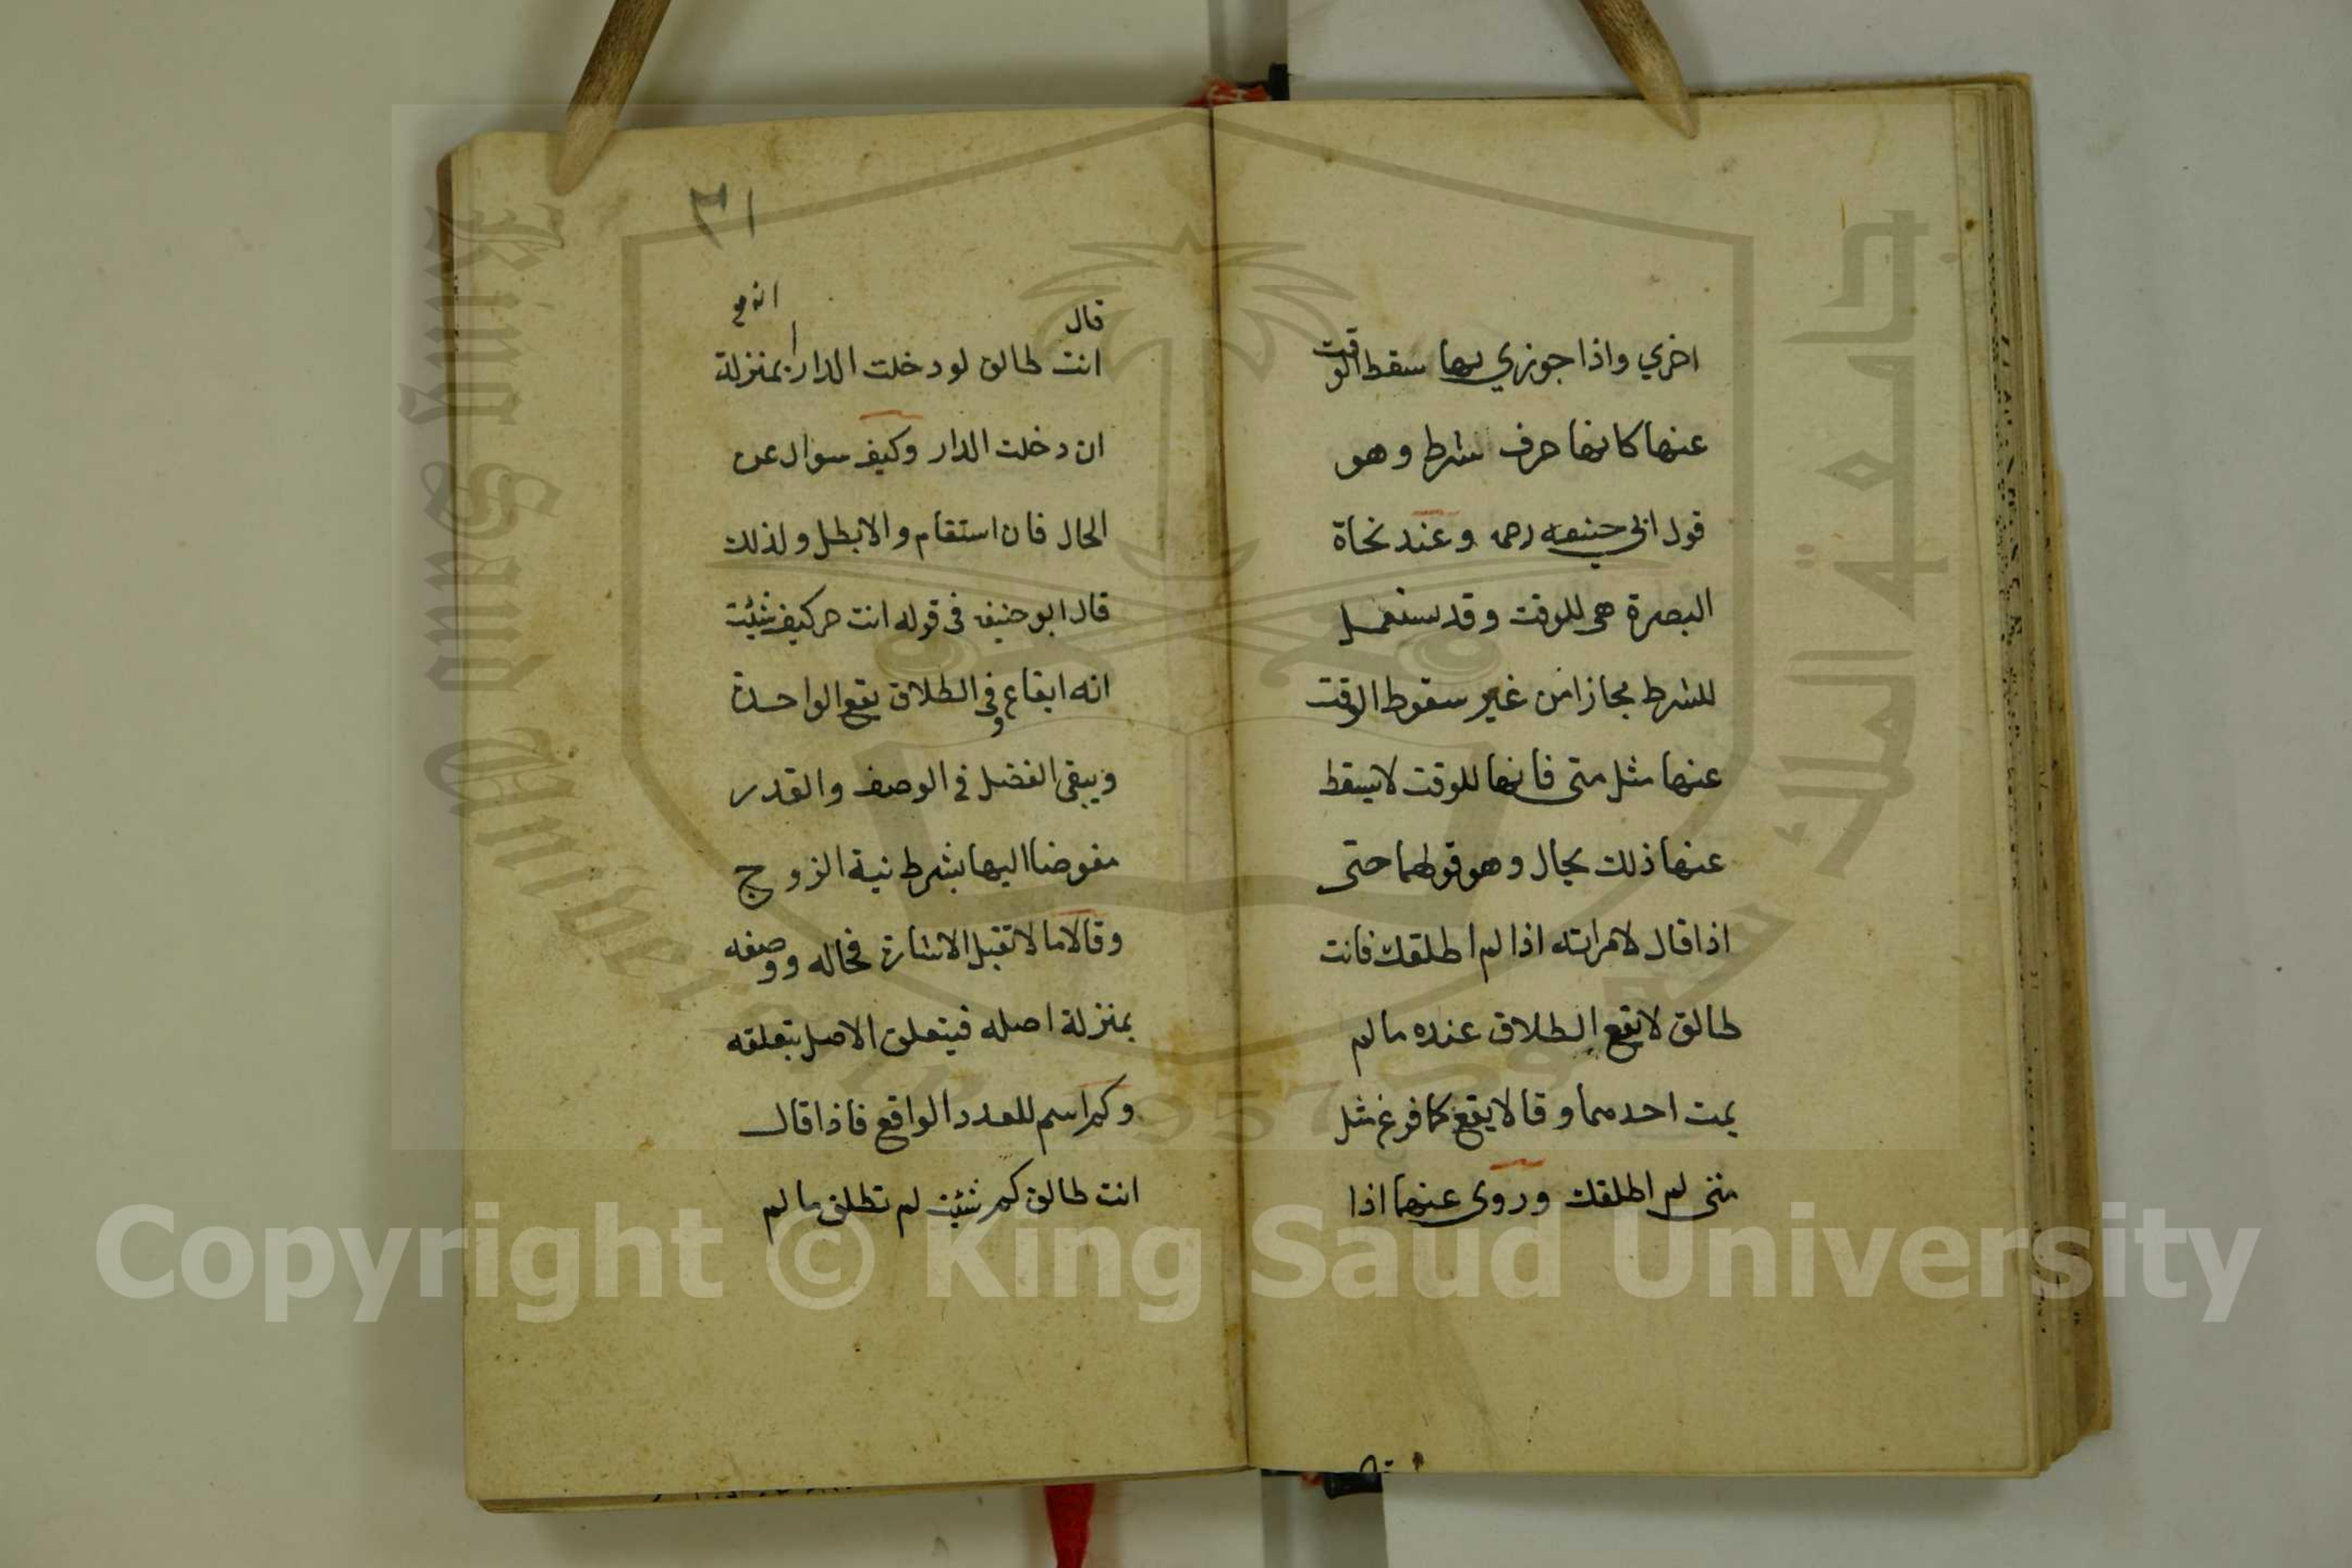 اخري واذا جوزي بها سقط الوقت
عنها كانها حرف شرط وهو
قول ابي حنيفه رحمه وعند نحاة
البصرة هى للوقت وقد يستعمل
للشرط مجازا من غير سقوط الوقت
عنها مثل متى فانها للوقت لا يسقط
عنها ذلك بحال وهو قولهما حتى
اذا قال لامراته اذا لم اطلقك فانت
طالق لا يقع الطلاق عنده ما لم
يمت احدهما وقالا يقع كما فرغ مثل
متى لم اطلقك وروى عنهما اذا
٣١
قال
انت طالق لو دخلت الدار بمنزلة
ان دخلت الدار وكيف سوال عن
الحال فان استقام والا بطل ولذلك
قال ابو حنيفه فى قوله انت حر كيف شئت
انه ايقاع وفى الطلاق يقع الواحدة
ويبقى الفضل فى الوصف والقدر
مفوضا اليها بشرط نية الزوج
وقالا ما لا تقبل الاشارة فحاله ووصفه
بمنزلة اصله فيتعلق الاصل بتعلقه
وكم اسم للعدد الواقع فاذا قال
انت طالق كم شئت لم تطلق ما لم
جامعة الملك سعود
King Saud University
1957
Copyright © King Saud University